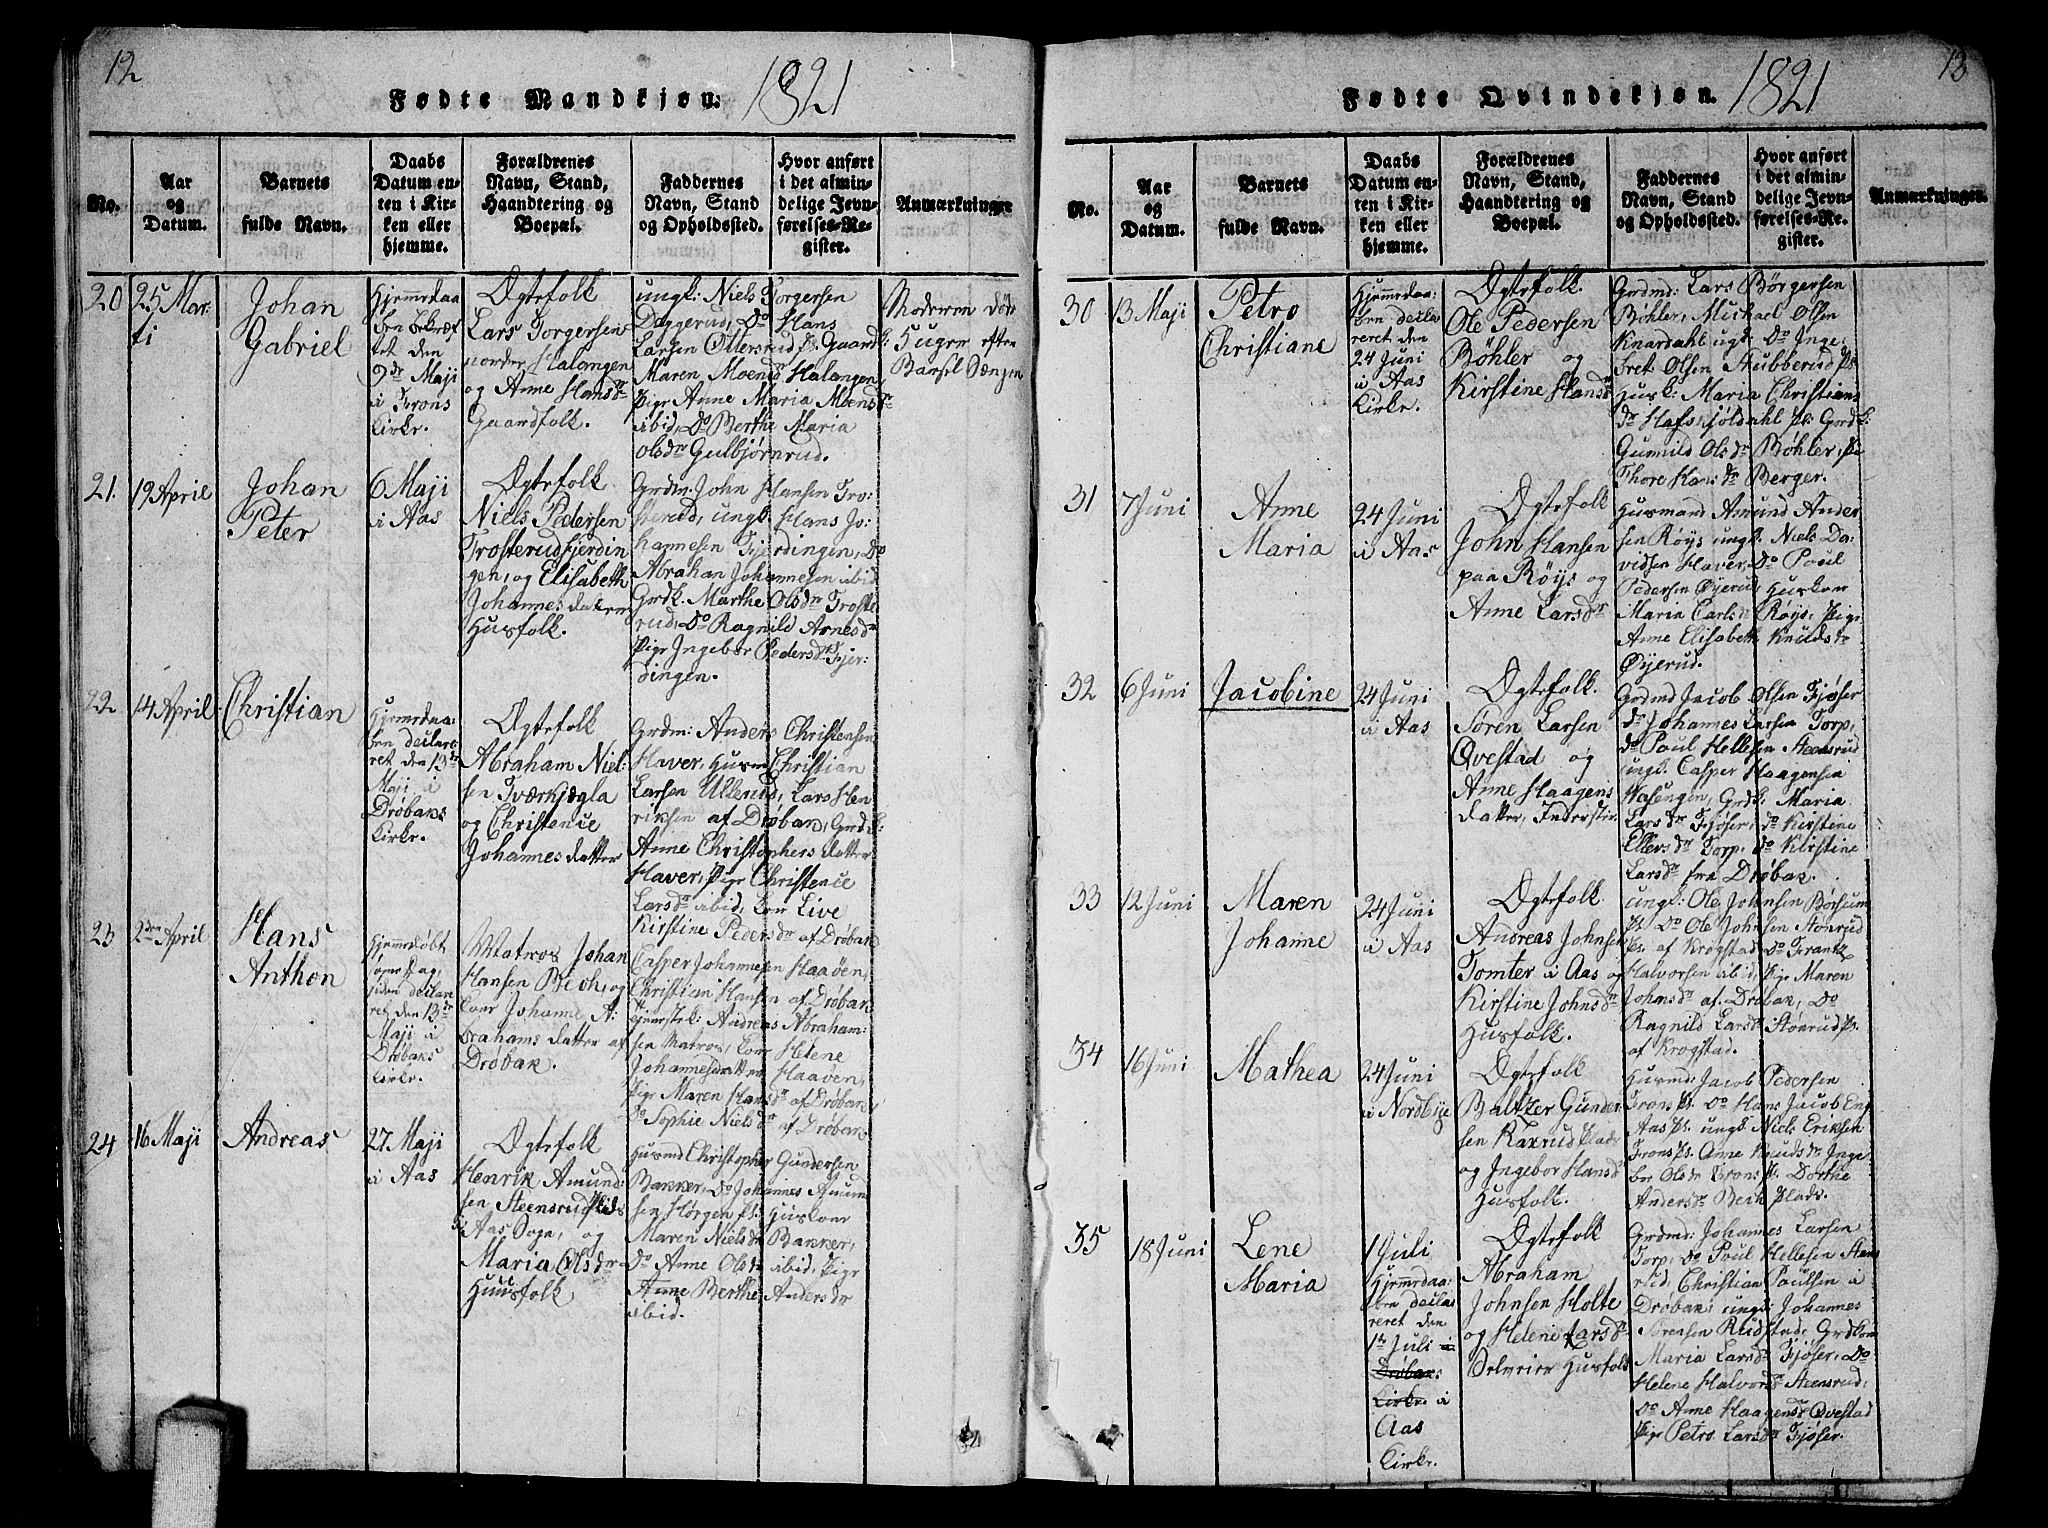 12
Fødte Mandkjøn. 1821
No.
Aar
og
Datum.
Barnets
fulde Navn.
Daabs
Datum en-
ten i Kir-
ken eller
hjemme.
Forældrenes
Navn, Stand,
Haandtering og
Boepæl.
Faddernes
Navn, Stand
og Opholdssted.
Hvor anført
i det almin-
delige Jevn-
førelses-Re-
gister.
Anmærkninger
20
25 Mar-
ti
Johan
Gabriel
Hjemmedaa
ben bekræf
tet den
9de Maji
i Frons
Kirke.
Ægtefolk
Lars Torgersen
nordre Halangen
og Anne Hansdr
Gaardfolk.
ungk: Niels Torgersen
Daggerud, Do Hans
Larsen Ottersrud, Gaardk:
Maren Moensdr Halangen,
Pige Anne Maria Moensdr
ibid, Do Berthe Maria
olsdr Gulbjørnrud.
Moderen døde
5 uger efter
Barsel Sængen
21.
19 April
Johan
Peter
6 Maji
i Aas
Ægtefolk
Niels Pedersen
Trosterud fjerdin
gen, og Elisabeth
Johannes datter
Husfolk.
Grdm: John Hansen Tro-
sterud, ungk: Hans Jo-
hannesen Fjerdingen, Do
Abrahan Johannesen ibid
Grdk. Marthe Olsdr Troste
rud, Do Ragnild Arnesdr
Pige Ingebor Pedersdr Fjer-
dingen.
22
14 April
Christian
Hjemmedaa:
ben declare
ret den 13de
Maji i
Drøbaks
Kirke.
Ægtefolk
Abraham Niel-
sen Tværkjægla
og Christence
Johannes datter
Grdm: Anders Christensen
Haver, Husmd Christian
Larsen Ullerud, Lars Hen
riksen af Drøbak, Grdk:
Anne Christophers datter
Haver, Pige Christence
Larsdr ibid, Kone Live
Kirstine Pedersdr af Drøbak
23
2den April
Hans
Anthon
Hjemmedøbt
samme dag,
siden declare
ret den 13de
Maji i
Drøbaks
Kirke.
Matros Johan
Hansen Bech, og
Kone Johanne A-
brahams datter af
Drøbak.
Casper Johannesen Haaøen,
Christian Hansen af Drøbak
Andreas Abraham-
sen Matros, Kone Helene
Johannesdatter Haaøen,
Pige Maren Hansdr af Drøbak,
Do Sophie Nielsdr af Drøbak
24
16 Maji
Andreas
27 Maji
i Aas
Ægtefolk
Henrik Amund
sen Steensrud Plads
i Aas Sogn, og
Maria Olsdr
Huusfolk
Husmd Christopher Gundersen
Bakker, Do Johannes Amund
sen Hørgen Pl: Huskone
Maren Nielsdr Bakker,
Do Anne Olsdr ibid, Pige
Anne Berthe Andersdr
ibid.
13
Fødte Qvindekjøn. 1821
No.
Aar
og
Datum.
Barnets
fulde Navn.
Daabs
Datum en-
ten i Kir-
ken eller
hjemme.
Forældrenes
Navn, Stand,
Haandtering og
Boepæl.
Faddernes
Navn, Stand
og Opholdssted.
Hvor anført
i det almin-
delige Jevn-
førelses-Re-
gister.
Anmærkninger.
30
13 Maji
Petro
Christiane
Hjemmedaa:
ben decla
reret den
24 Juni
i Aas
Kirke.
Ægtefolk.
Ole Pedersen
Bøhler og
Kirstine Hansdr
Grdmd: Lars Børgersen
Bøhler, Michael Olsen
Knardahl ugk: Do Inge-
bret Olsen Stubberud Pl:
Husk: Maria Christians
dr Hafskjøldahl Pl: Grdk:
Gunnild Olsdr Bøhler, Pi
Thore Hansdr Berger.
31
7 Juni
Anne
Maria
24 Juni
i Aas
Ægtefolk
John Hansen
paa Røijs og
Anne Larsdr
Husmand Amund Ander
sen Røijs ungk: Niels Da-
vidsen Haver, Do Poul
Pedersen Øijerud, Huskone
Maria Carlsdr Røijs, Pige
Anne Elisabeth Knudsdr
Øijerud.
32
6 Juni
Jacobine
24 Juni
i Aas
Ægtefolk.
Søren Larsen
Qvestad og
Anne Haagens
datter, Inderster
Grdmd Jacob Olsen Fjøser
do Johannes Larsen Torp,
do Poul Hellesen Steensrud
ungk: Casper Haagensen
Grdk: Maria
Larsdr Fjøser, do Kirstine
Ellersdr Torp, do Kirstine
Larsdr fra Drøbak.
33
12 Juni
Maren
Johanne
24 Juni
i Aas
Ægtefolk
Andreas Johnsen
Tomter i Aas og
Kirstine Johnsdr
Husfolk.
ungk: Ole Johnsen Børsum
Pl. Do Ole Johnsen Stønrud
Pl. af Krogstad, Do Frantz
Halvorsen ibid, Pige Maren
Johnsdr af Drøbak, Do
Ragnild Larsdr Stønrud Pl.
af Krogstad.
34
16 Juni
Mathea
24 Juni
i Nordbye
Ægtefolk
Baltzer Gunder
sen Kaxrud Plads
og Ingebor Hansdr
Husfolk.
Husmd: Jacob Pedersen
Frons Pl. Do Hans Jacob
Aas Pl: ungk: Niels Eriksen
Frons Pl. Anne Knudsdr Inge
bor Olsdr Frons Pl. Dorthe
Andersdr Bech Plads.
35
18 Juni
Lene
Maria
1 Juli
Hjemmedaa:
ben decla
reret den
1te Juli i
Drøbaks
Kirke i
Aas
Kirke.
Ægtefolk
Abraham
Johnsen Holte
og Helene Larsdr
Selveier Husfolk
Grdmd: Johannes Larsen
Torp, Do Poul Hellesen Steens
rud, Christian Paulsen i
Drøbak, ungk: Johannes
Sørensen Rudstad, Grdkone
Maria Larsdr Fjøser, Do
Helene Halvorsdr Steensrud,
Do Anne Haagensdr Qvestad
Pige Petro Larsdr Fjøser.